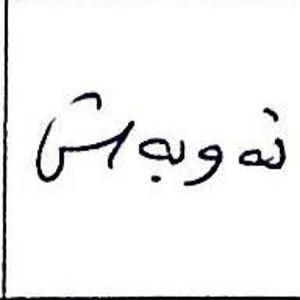 تەوبەش